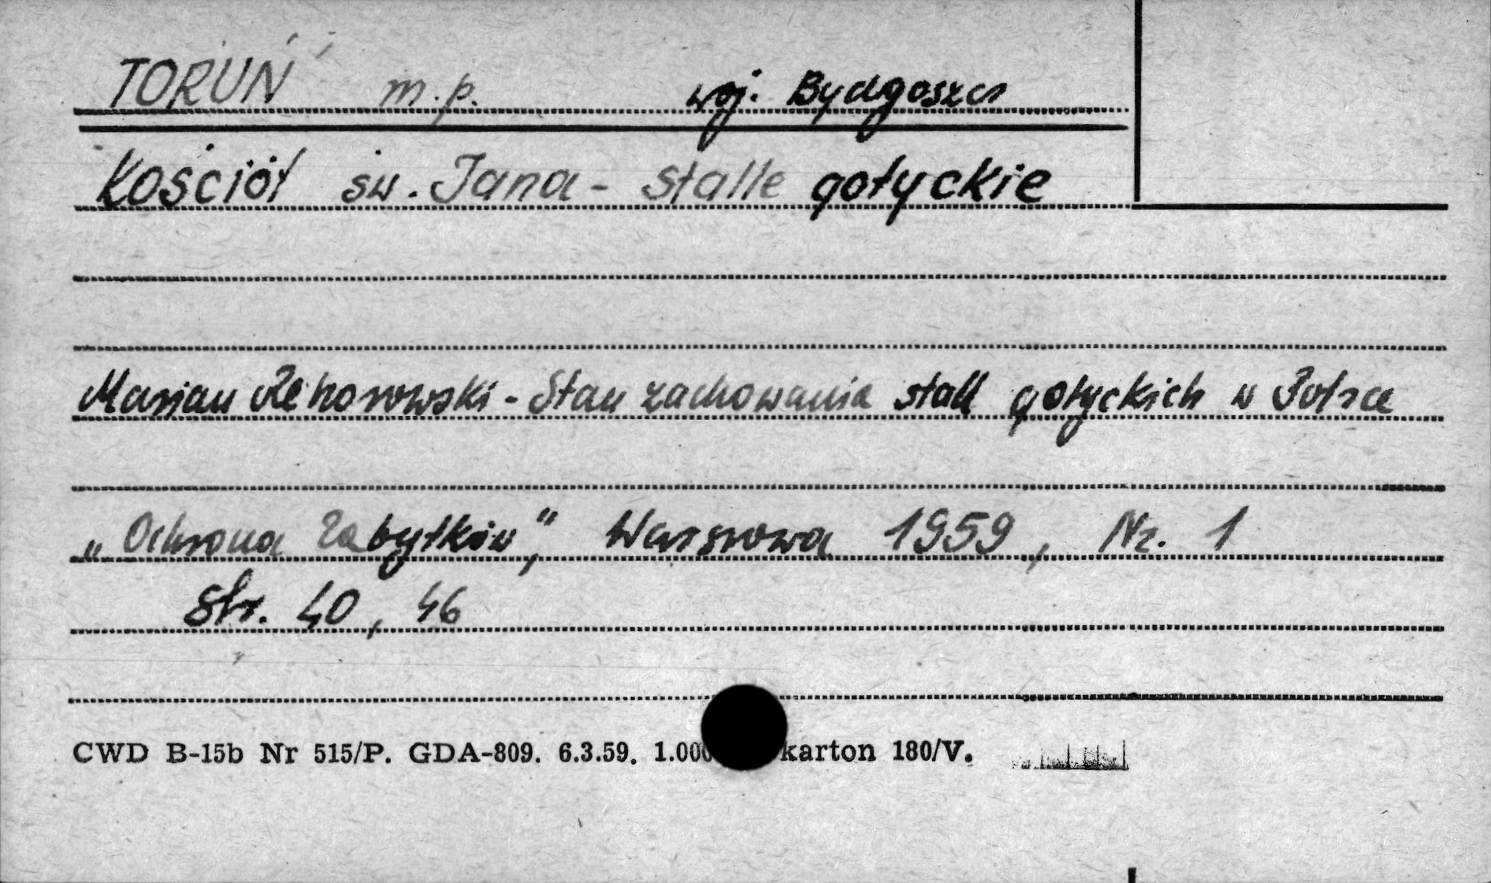 TORUŃ m.p. woj. Bydgoszcz
Kościół św. Jana - stalle gotyckie
Marian Rehorowski - Stan zachowania stall gotyckich w Polsce
„Ochrona Zabytków", Warszawa 1959, Nr. 1
Str. 40, 46
CWD B-15b Nr 515/P. GDA-809. 6.3.59. karton 180/V.